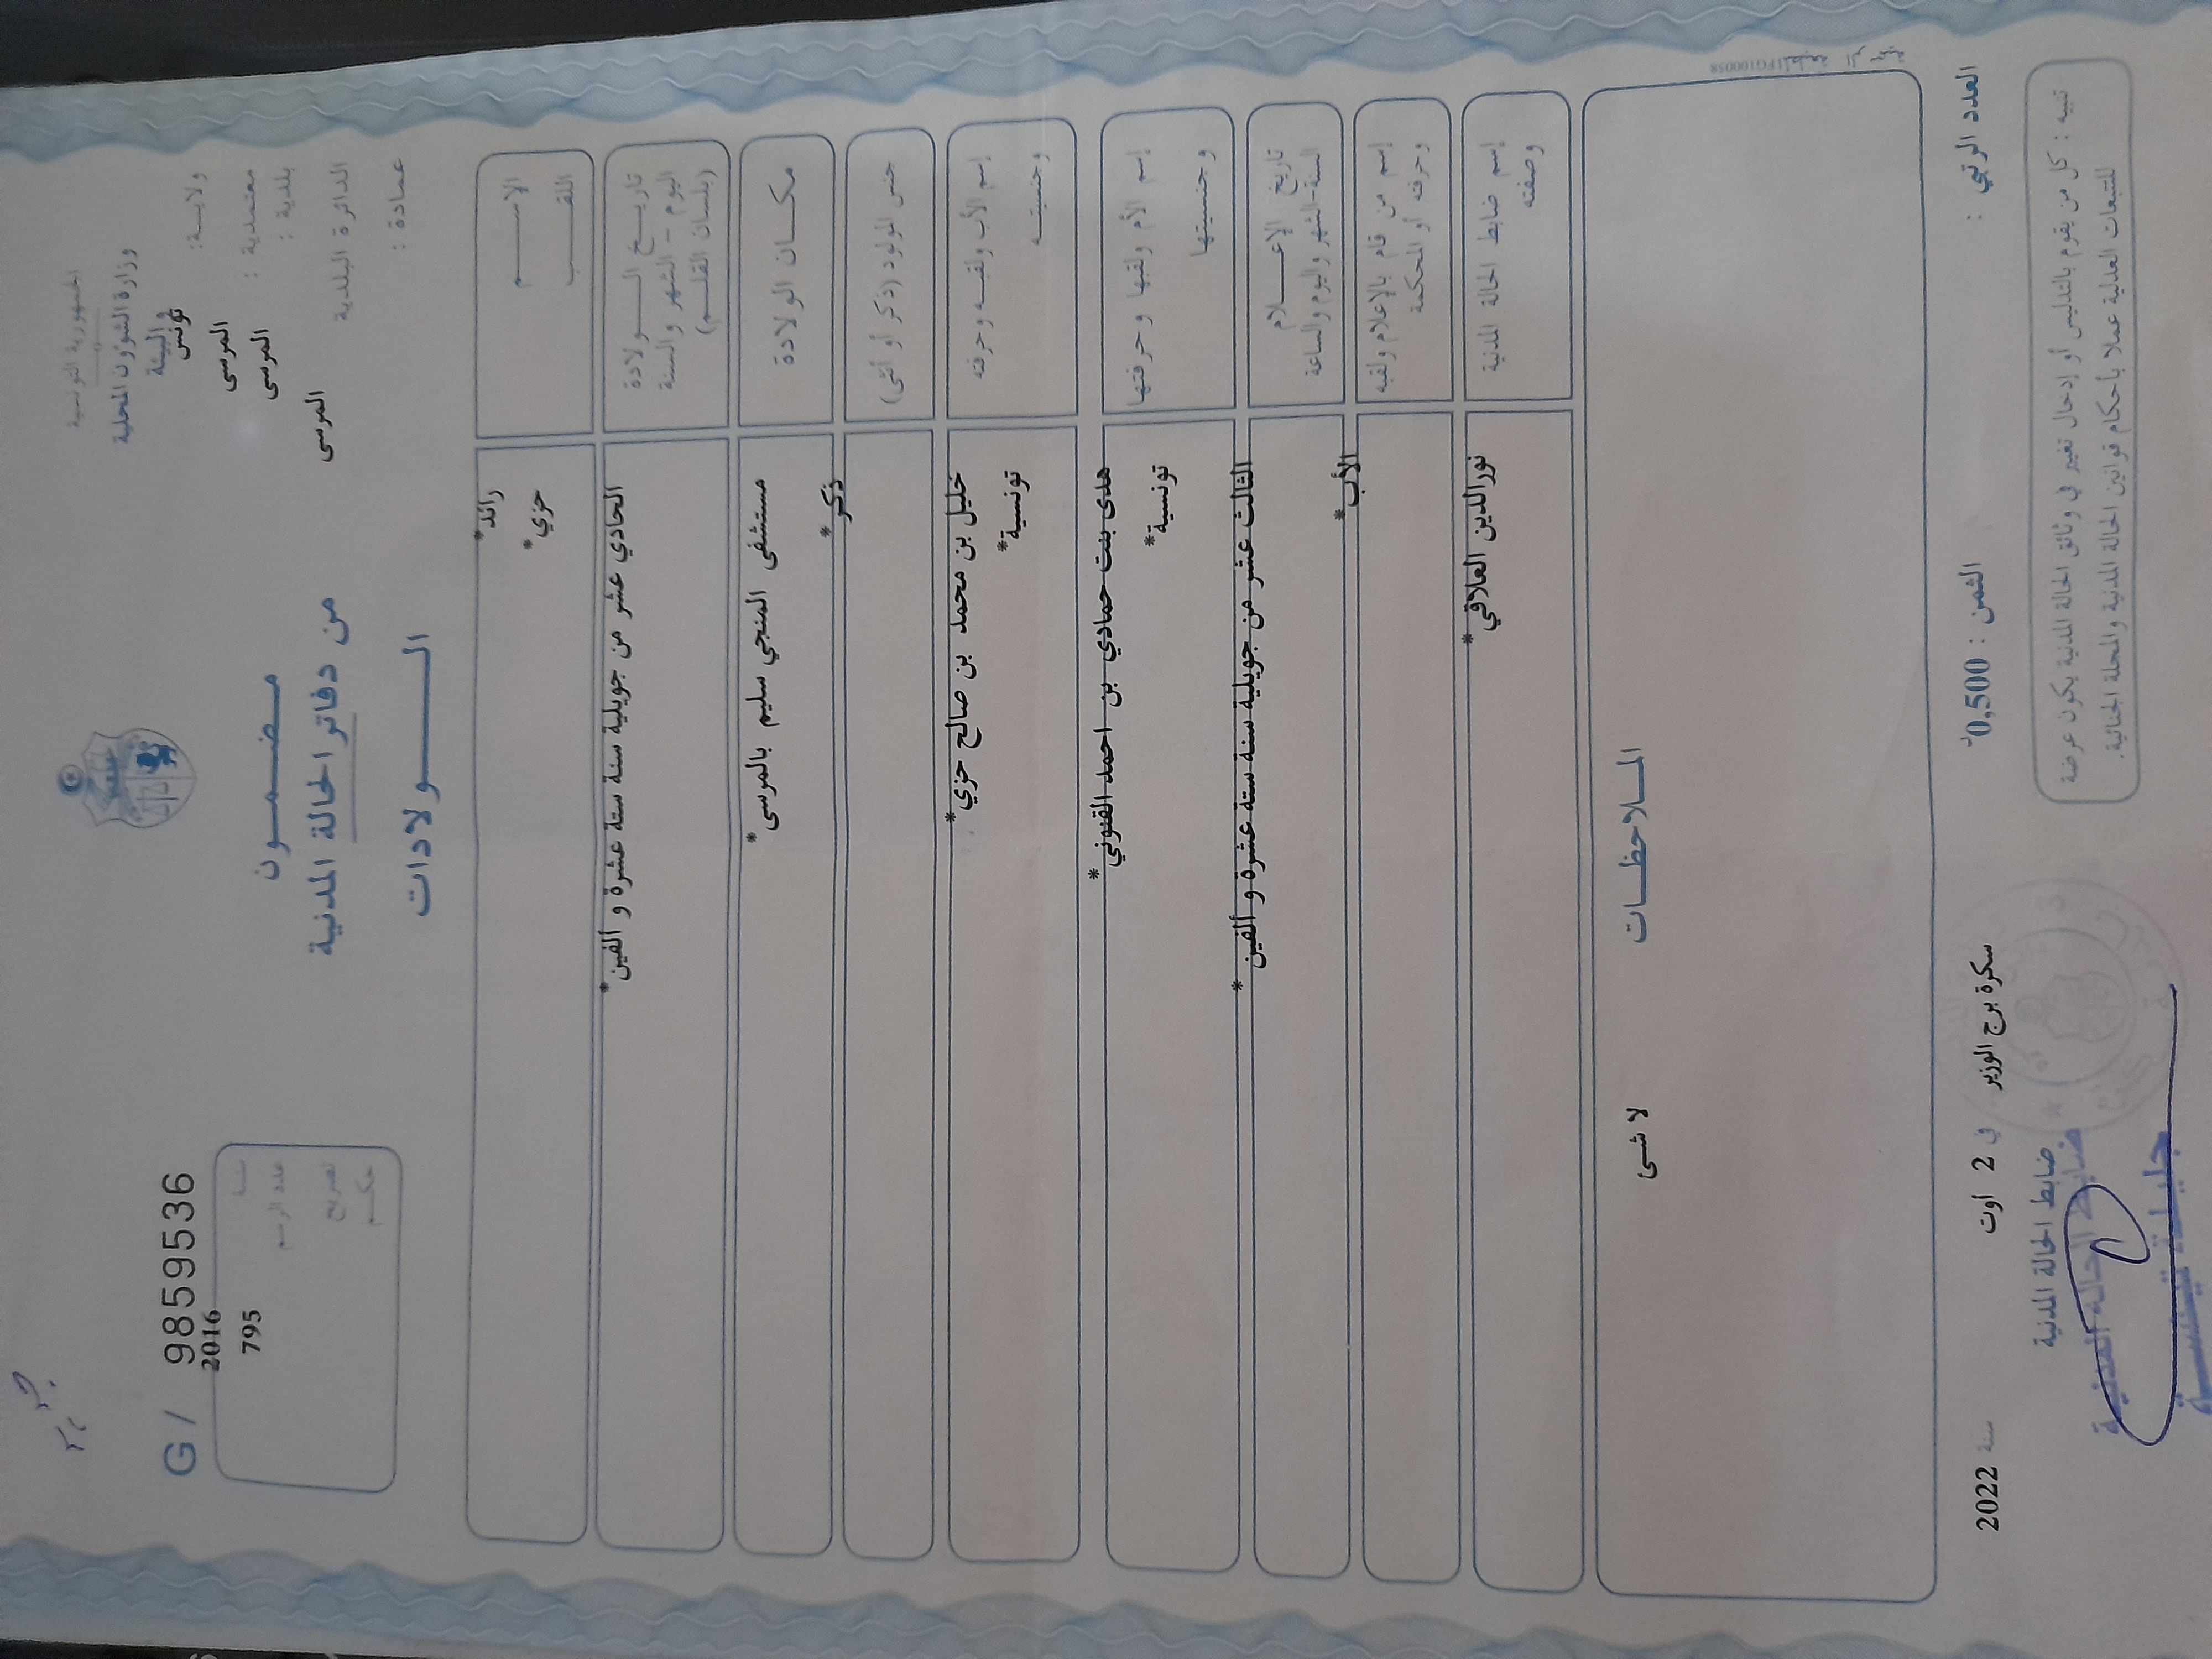 الجمهورية التونسية
وزارة الشؤون المحلية
والبيئة
ولاية: تونس
معتمدية : المرسى
بلدية : المرسى
الدائرة البلدية المرسى
عمادة :
مضمون
من دفاتر الحالة المدنية
الولادات
G / 98559536
سنة 2016
عدد الرسم 795
تصريح
حكم
الاسم رائد*
اللقب حزي*
تاريخ الولادة الحادي عشر من جويلية سنة ستة عشرة و ألفين*
اليوم - الشهر والسنة
(بلسان القلم)
مكان الولادة مستشفى المنجي سليم بالمرسى*
جنس المولود (ذكر أو أنثى) ذكر*
إسم الأب ولقبه وحرفته خليل بن محمد بن صالح حزي*
وجنسيته تونسية*
إسم الأم ولقبها وحرفتها هدى بنت حمادي بن احمد القنوني*
وجنسيتها تونسية*
تاريخ الإعلام الثالث عشر من جويلية سنة ستة عشرة و ألفين*
السنة-الشهر واليوم والساعة
إسم من قام بالإعلام ولقبه الأب*
وحرفته أو المحكمة
إسم ضابط الحالة المدنية نورالدين العلاقي*
وصفته
الملاحظات
لا شئ
العدد الرتبي :
الثمن : 0,500د
سكرة برج الوزير في 2 أوت سنة 2022
ضابط الحالة المدنية
ضابط الحالة المدنية
تنبيه : كل من يقوم بالتدليس أو إدخال تغيير في وثائق الحالة المدنية يكون عرضة
للتتبعات العدلية عملا بأحكام قوانين الحالة المدنية والمجلة الجنائية.